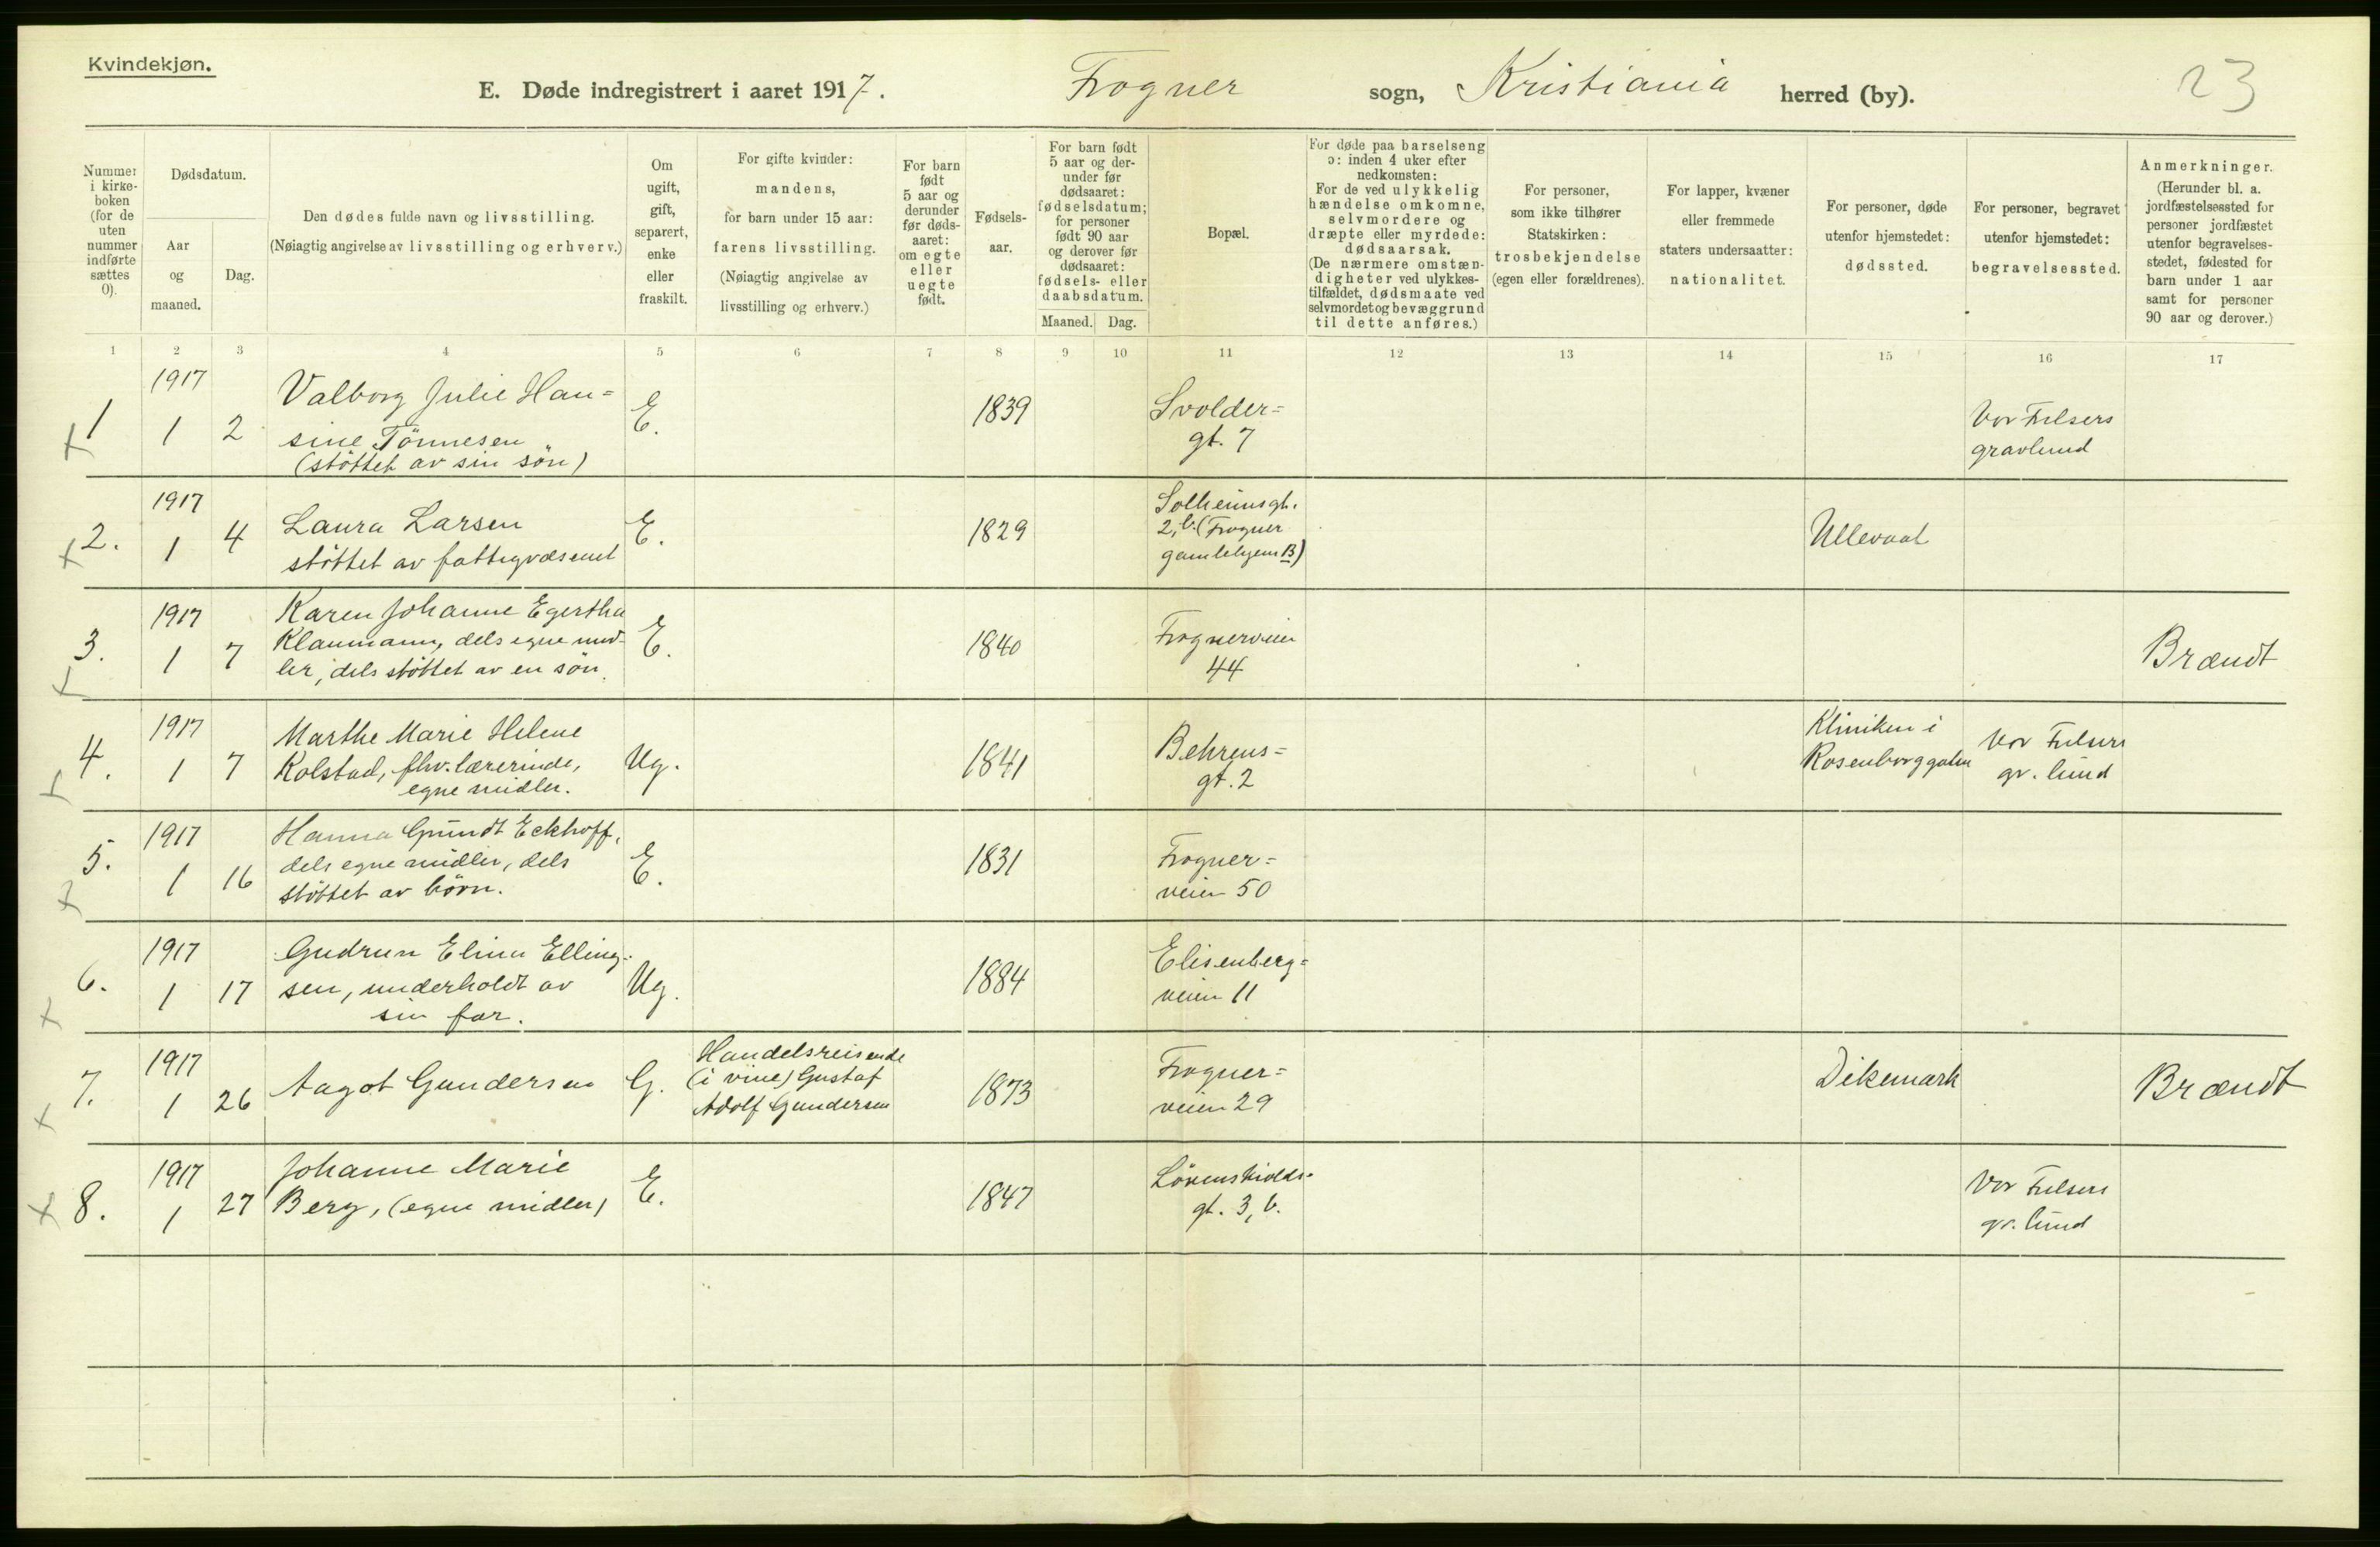 Kvindekjøn.
E. Døde indregistrert i aaret 1917. Frogner sogn, Kristiania herred (by). 23
Nummer
i kirke-
boken
(for de
uten
nummer
indførte
sættes
0).
Dødsdatum.
Aar
og
maaned.
Dag.
Den dødes fulde navn og livsstilling.
(Nøiagtig angivelse av livsstilling og erhverv.)
Om
ugift,
gift,
separert,
enke
eller
fraskilt.
For gifte kvinder:
mandens,
for barn under 15 aar:
farens livsstilling.
(Nøiagtig angivelse av
livsstilling og erhverv.)
For barn
født
5 aar og
derunder
før døds-
aaret:
om egte
eller
uegte
født.
Fødsels-
aar.
For barn født
5 aar og der-
under før
dødsaaret:
fødselsdatum;
for personer
født 90 aar
og derover før
dødsaaret:
fødsels- eller
daabsdatum.
Maaned. Dag.
Bopæl.
For døde paa barselseng
ɔ: inden 4 uker efter
nedkomsten:
For de ved ulykkelig
hændelse omkomne,
selvmordere og
dræpte eller myrdede:
dødsaarsak.
(De nærmere omstæn-
digheter ved ulykkes-
tilfældet, dødsmaate ved
selvmordet og bevæggrund
til dette anføres.)
For personer,
som ikke tilhører
Statskirken:
trosbekjendelse
(egen eller forældrenes).
For lapper, kvæner
eller fremmede
staters undersaatter:
nationalitet.
For personer, døde
utenfor hjemstedet:
dødssted.
For personer, begravet
utenfor hjemstedet:
begravelsessted.
Anmerkninger.
(Herunder bl. a.
jordfæstelsessted for
personer jordfæstet
utenfor begravelses-
stedet, fødested for
barn under 1 aar
samt for personer
90 aar og derover.)
1 2 3 4 5 6 7 8 9 10 11 12 13 14 15 16 17
x 1
1917
1 2
Valborg Julie Han=
sine Tönnesen
(stöttet av sin sön)
E.
1839
Svolder=
gt. 7
Vor Frelsers
gravlund
x 2.
1917
1 4
Laura Larsen
stöttet av fattigvæsenet
E.
1829
Solheimsgt.
2, b. (Frogner
gamlehjem B)
Ullevaal
x 3.
1917
1 7
Karen Johanne Egertha
Klaumann, dels egne mid-
ler, dels stöttet av en sön.
E.
1840
Frognerveien
44
Brændt
x 4.
1917
1 7
Marthe Marie Helene
Kolstad, fhv. lærerinde,
egne midler.
Ug.
1841
Behrens=
gt. 2
Kliniken i
Rosenborggaten
Vor Frelsers
gr. lund
x 5.
1917
1 16
Hanna Gründt Eckhoff,
dels egne midler, dels
stöttet av börn.
E.
1831
Frogner=
veien 50
x 6.
1917
1 17
Gudrun Elina Elling-
sen, underholdt av
sin far.
Ug.
1884
Elisenberg=
veien 11
x 7.
1917
1 26
Aagot Gundersen
G.
Handelsreisende
(i vine) Gustaf
Adolf Gundersen
1873
Frogner=
veien 29
Dikemark
Brændt
x 8.
1917
1 27
Johanne Marie
Berg, (egne midler)
E.
1847
Lövenskiolds-
gt. 3, b.
Vor Frelsers
gr. lund